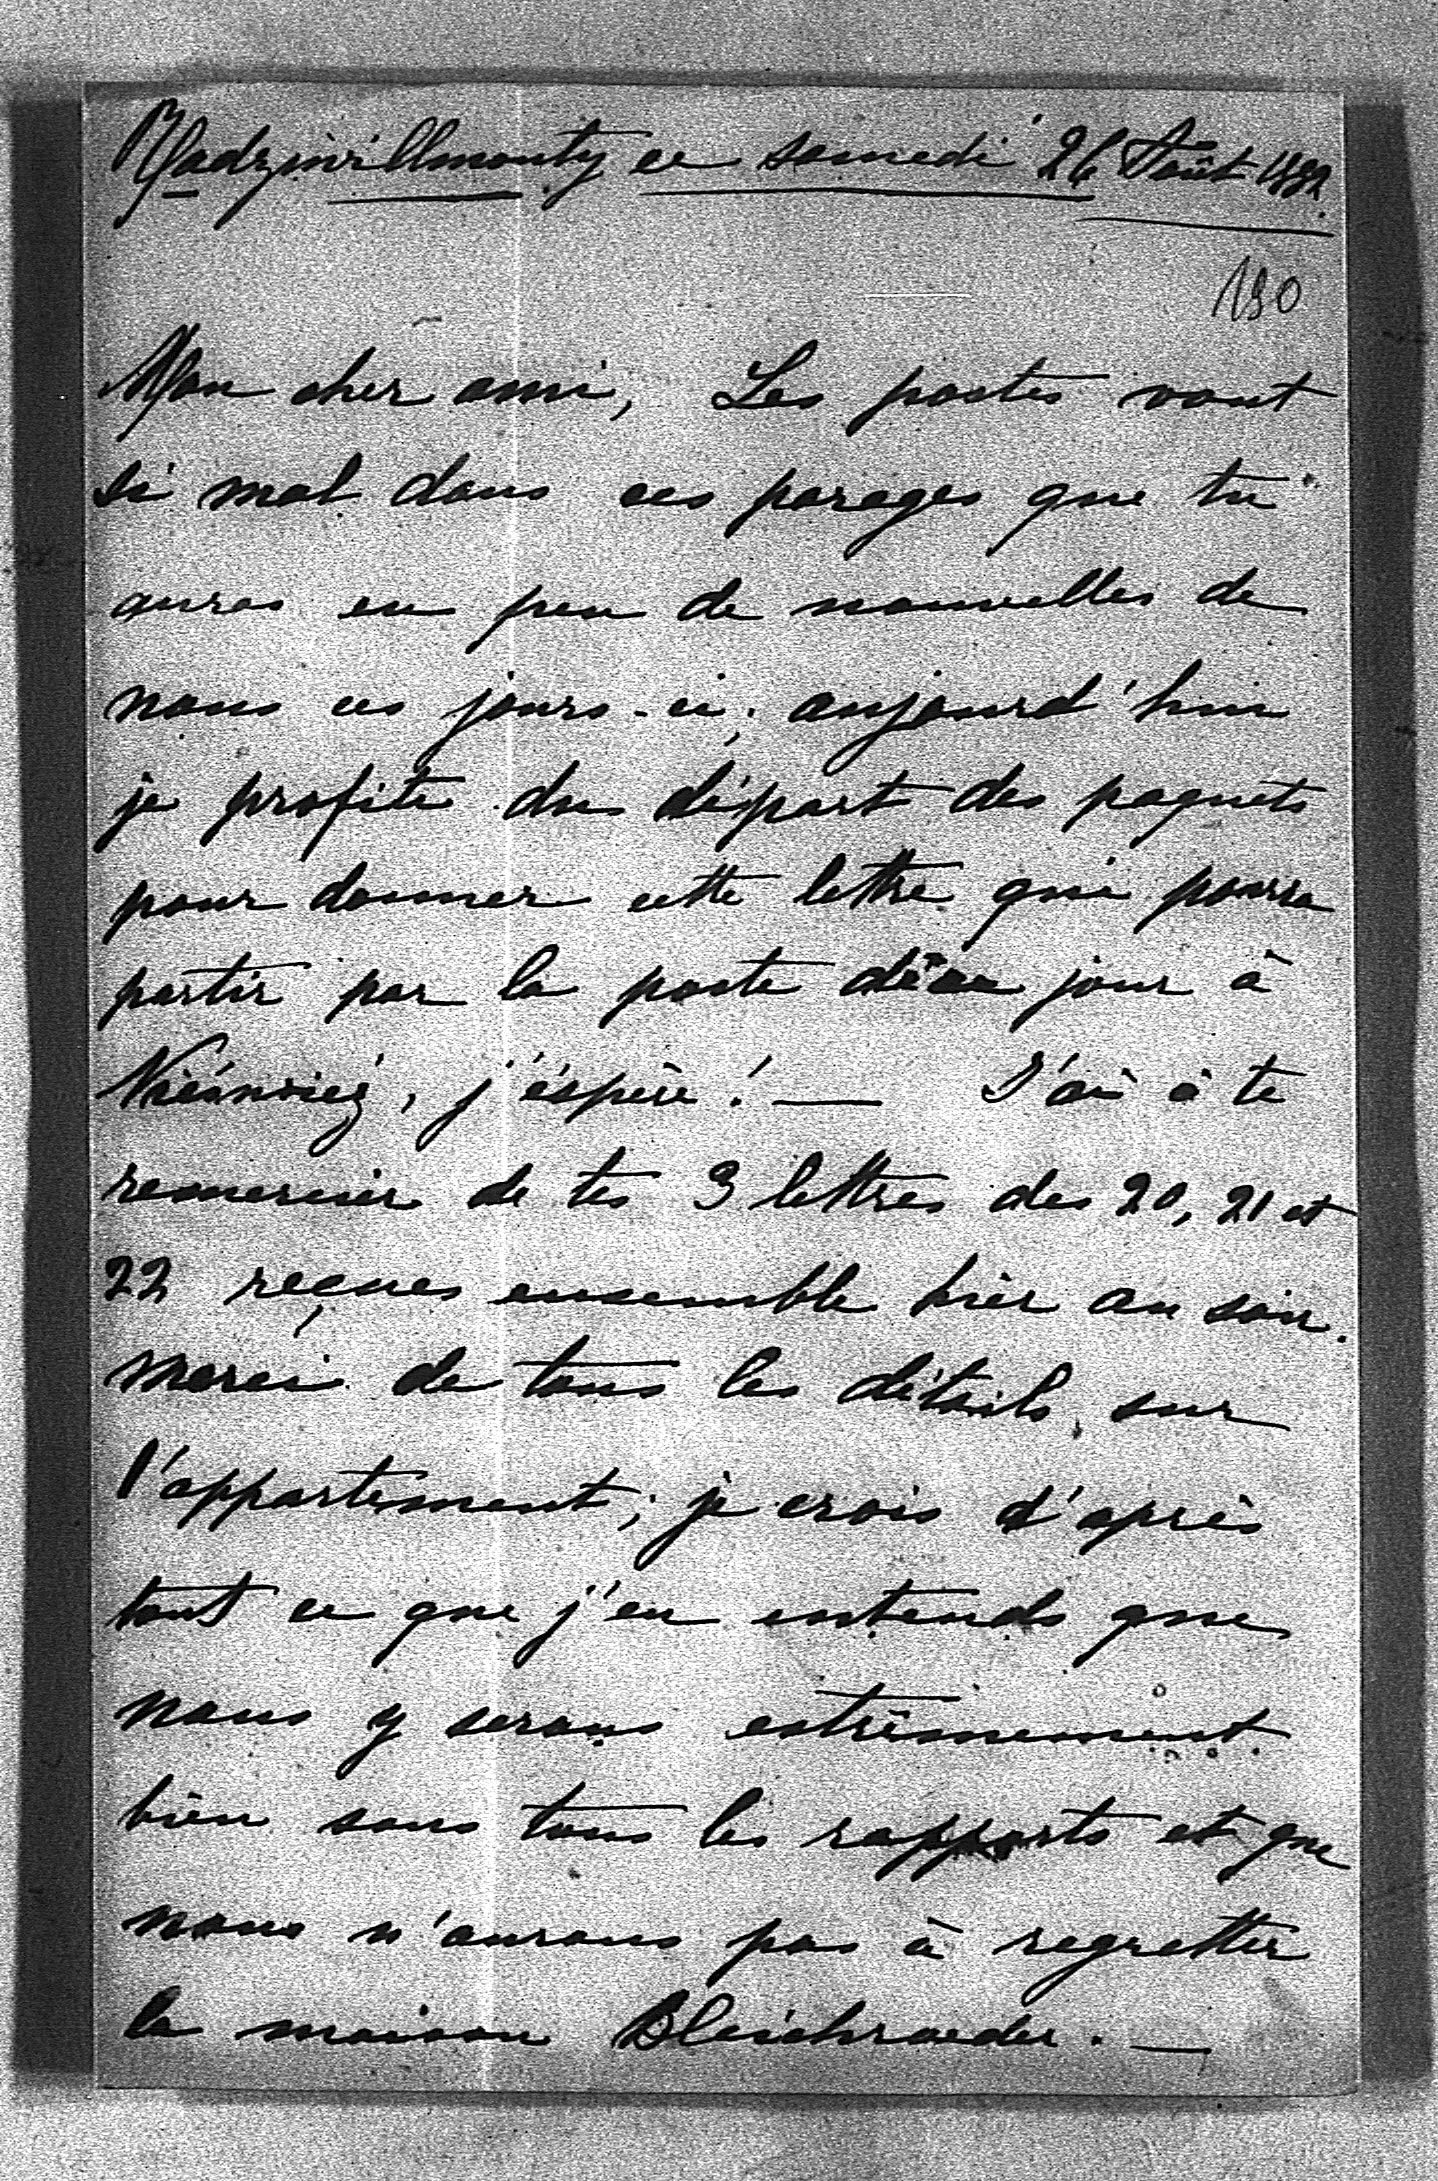 Radziwillmonty ce samedi 26 Août 1882.
190
Mon cher ami, Les postes vont
si mal dans ces parages que tu
auras eu peu de nouvelles de
nous ces jours-ci; aujourd'hui
je profite du départ des paquets
pour donner cette lettre qui pourra
partir par la poste de ce jour à
Niéswież, j'éspère! — J'ai à te
remercier de tes 3 lettres des 20, 21 et
22 reçues ensemble hier au soir.
merci de tous les détails sur
l'appartement; je crois d'après
tout ce que j'en entends que
nous y serons extrêmement
bien sous tous les rapports et que
nous n'aurons pas à regretter
la maison Bleichroeder. —